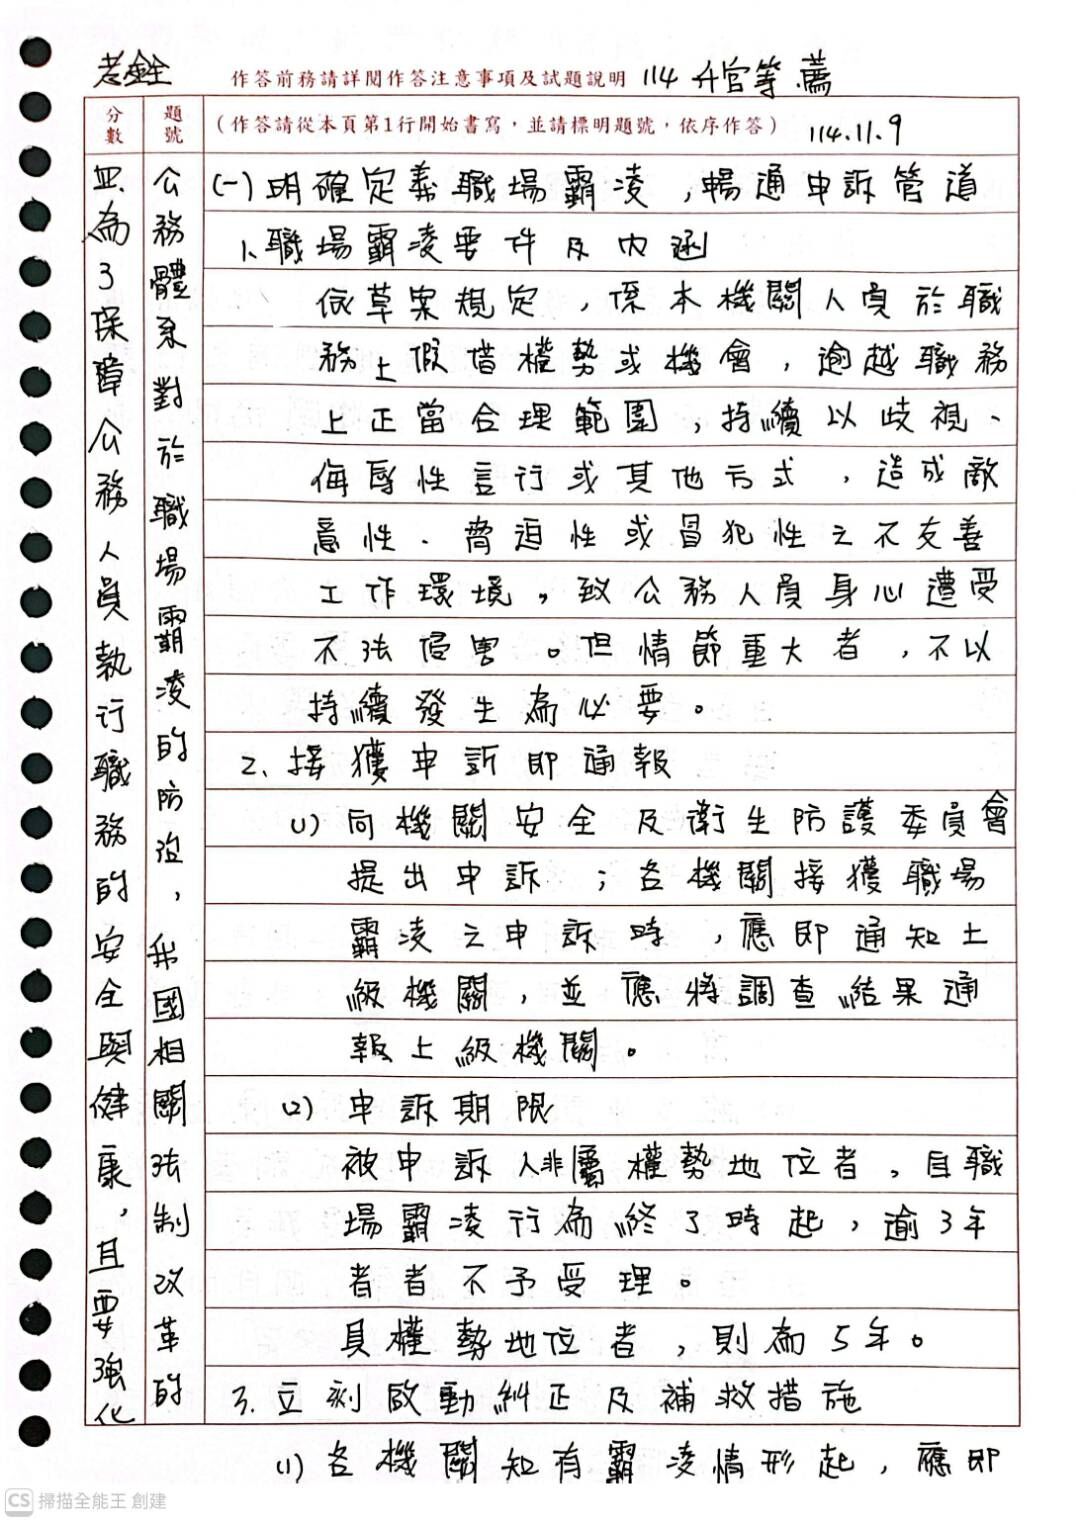 老銓 作答前務請詳閱作答注意事項及試題說明 114 升官等.薦
分數 題號 (作答請從本頁第1行開始書寫,並請標明題號,依序作答) 114.11.9
四.為了保障公務人員執行職務的安全與健康,且要強化
公務體系對於職場霸凌的防治,我國相關法制改革的
(一)明確定義職場霸凌,暢通申訴管道
1.職場霸凌要件及內涵
依草案規定,係本機關人員於職
務上假借權勢或機會,逾越職務
上正當合理範圍,持續以歧視、
侮辱性言行或其他方式,造成敵
意性、脅迫性或冒犯性之不友善
工作環境,致公務人員身心遭受
不法侵害。但情節重大者,不以
持續發生為必要。
2.接獲申訴即通報
(1)向機關安全及衛生防護委員會
提出申訴;各機關接獲職場
霸凌之申訴時,應即通知上
級機關,並應將調查結果通
報上級機關。
(2)申訴期限
被申訴人非屬權勢地位者,自職
場霸凌行為終了時起,逾3年
者者不予受理。
具權勢地位者,則為5年。
3.立刻啟動糾正及補救措施
(1)各機關知有霸凌情形起,應即
CS 掃描全能王 創建